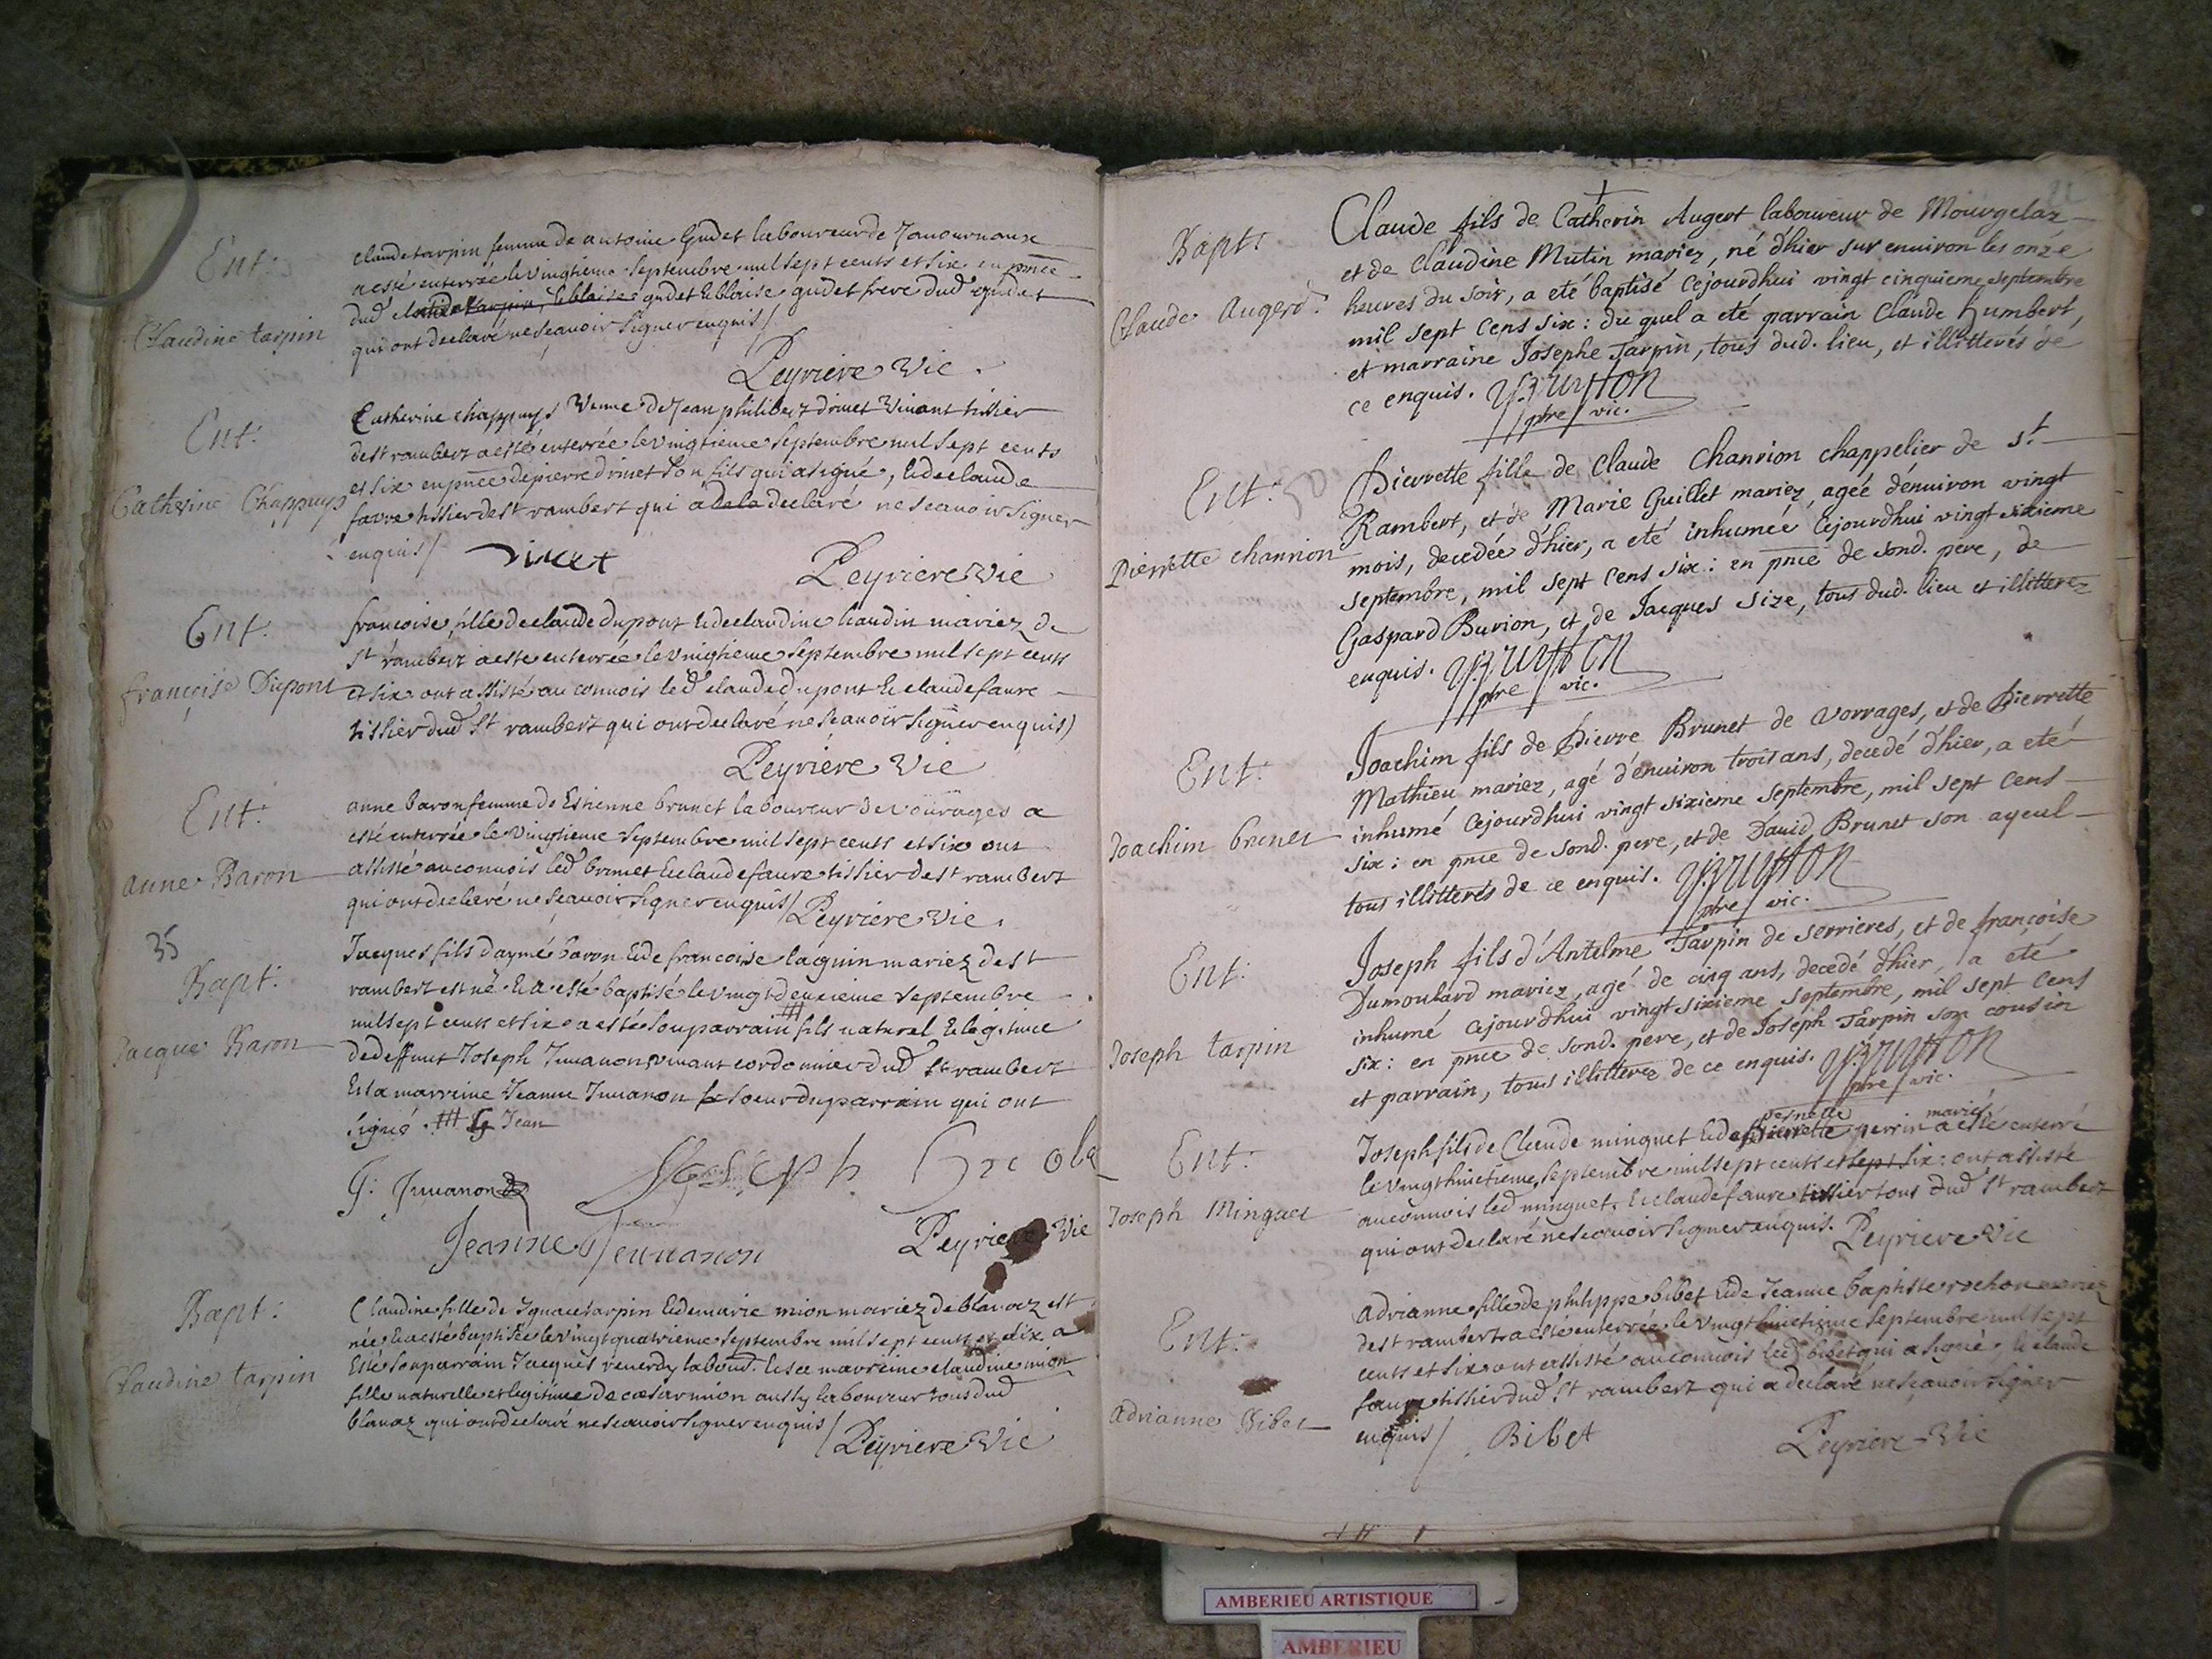 Ent:
Claudine tarpin
claude tarpin femme de antoine Gudet laboureur de
a esté enterrée le vingtieme septembre mil sept cents et six en pnce
dud gudet & blaise gudet frere dud gudet
qui ont declaré ne scavoir signer enquis/
Peyriere Vic.
Ent:
Catherine Chappuys
Catherine chappuys veuve de Jean philibert drivet vivant tissier
de st rambert a esté enterrée le vingtieme septembre mil sept cents
et six en pnce de pierre drivet son fils qui a signé, & de claude
favre tissier de st rambert qui a declaré ne scavoir signer
enquis/
Peyriere Vic
Ent:
françoise Dupont
françoise fille de claude dupont & de claudine mariez de
St rambert a esté enterrée le vingtieme septembre mil sept cents
et six ont assisté au convois led claude dupont & claude favre
tissier dud St rambert qui ont declaré ne scavoir signer enquis)
Peyriere Vic
Ent:
anne Baron
anne baron femme de Estienne brunet laboureur de vorages a
esté enterrée le vingtieme septembre mil sept cents et six ont
assisté au convois led brunet & claude favre tissier de st rambert
qui ont declaré ne scavoir signer enquis/ Peyriere Vic.
35
Bapt:
Jacque Baron
Jacques fils d'aymé baron & de francoise mariez de st
rambert est né & a esté baptisé le vingt deuxieme septembre
mil sept cents et six a esté son parrain ### fils naturel & legitime
de deffunt Joseph Juvanon vivant cordonnier dud St rambert
& sa marreine Jeanne Juvanon soeur du parrain qui ont
signé. ### Jean
J: Juvanon
Joseph
Jeanne Jeuvanon
Peyriere Vic
Bapt:
Claudine tarpin
Claudine fille de Ignace tarpin & de marie mion mariez de blanaz est
née & a esté baptisée le vingt quatrieme septembre mil sept cents et six a
esté son parrain Jacques labour. & sa marreine claudine mion
fille naturelle et legitime de caesar mion aussy laboureur tous dud
blanaz qui ont declaré ne scavoir signer enquis/ Peyriere Vic
Bapt:
Claude Augerd.
Claude fils de Catherin Augert laboureur de Mourgelaz
et de Claudine Mutin mariez, né d'hier sur enuiron les onze
heures du soir, a eté baptisé cejourdhui vingt cinquieme septembre
mil sept cens six: du quel a eté parrain Claude Humbert,
et marraine Josephe Tarpin, tous dud. lieu, et illitterés de
ce enquis.
ptre vic.
Ent:
Pierrette chanrion
Pierrette fille de Claude Chanrion chappelier de St
Rambert, et de Marie Guillet mariez, agée d'enuiron vingt
mois, decedée d'hier, a eté inhumée cejourdhui vingt sixieme
septembre, mil sept cens six: en pnce de sond. pere, de
Gaspard Burion, et de Jacques Size, tous dud. lieu et illitterez
enquis.
ptre vic.
Ent:
Joachim brunet
Joachim fils de Pierre Brunet de Vorrages, et de Pierrette
Mathieu mariez, agé d'enuiron trois ans, decedé d'hier, a eté
inhumé cejourdhui vingt sixieme septembre, mil sept cens
six: en pnce de sond. pere, et de Dauid Brunet son ayeul
tous illitterés de ce enquis.
ptre vic.
Ent:
Joseph tarpin
Joseph fils d'Antelme Tarpin de serrieres, et de françoise
Dumoulard mariez, agé de cinq ans, decedé d'hier, a eté
inhumé cejourdhui vingt sixieme septembre, mil sept cens
six: en pnce de sond. pere, et de Joseph Tarpin son cousin
et parrain, tous illitterez de ce enquis.
ptre vic.
Ent:
Joseph Minguet
Joseph fils de Claude minguet & de pernette perrin mariés a esté enterré
le vingt huictieme septembre mil sept cents et sept six: ont assisté
au convois led minguet, & claude favre tissier tous dud St rambert
qui ont declaré ne scavoir signer enquis. Peyriere Vic
Ent:
adrianne Bibet
adrianne fille de philippe bibet & de Jeanne baptiste rochon mariez
de st rambert a esté enterrée le vingt huictieme septembre mil sept
cents et six ont assisté au convois led bibet qui a signé & claude
favre tissier dud St rambert qui a declaré ne scavoir signer
enquis/ Bibet
Peyriere Vic
AMBERIEU ARTISTIQUE
AMBERIEU